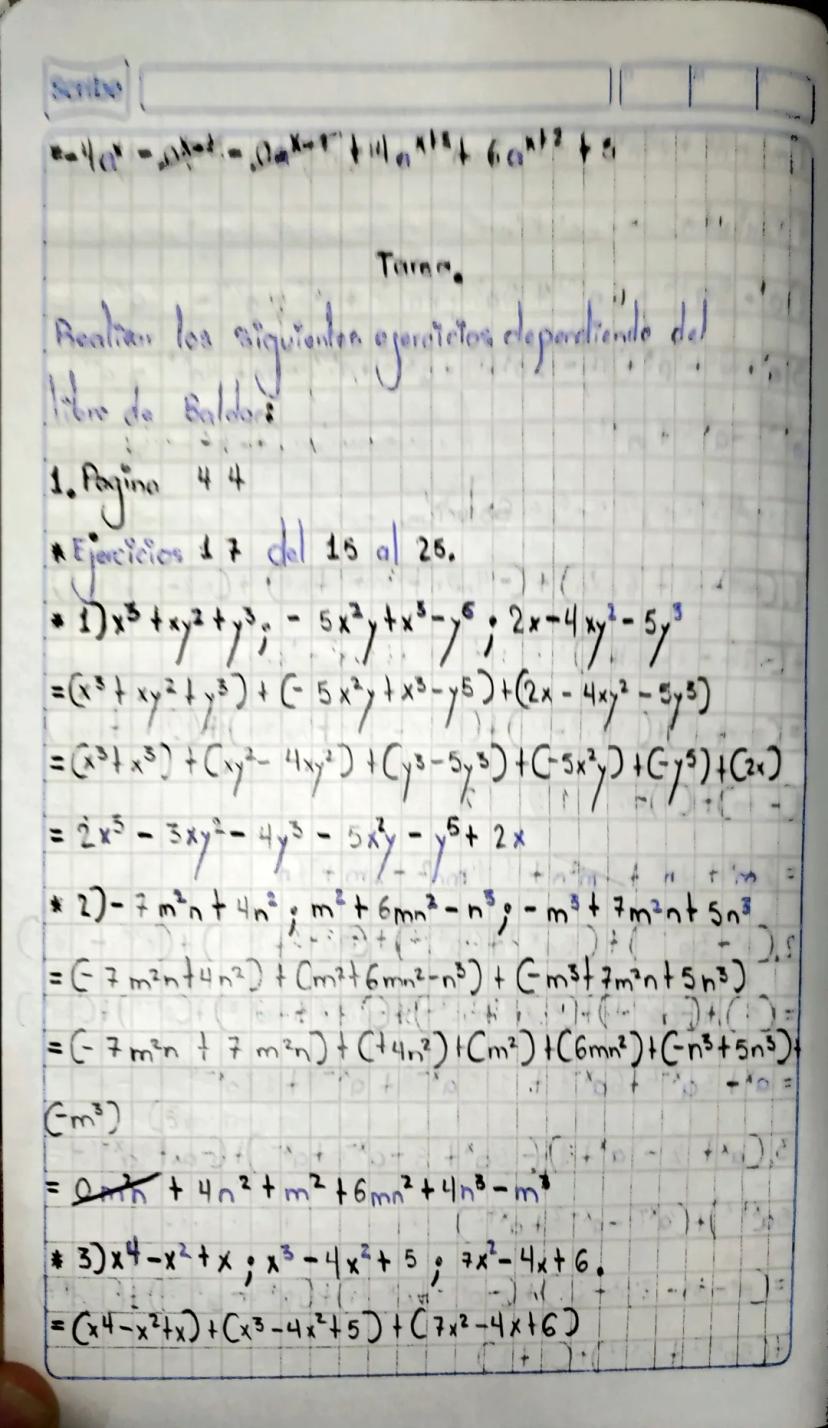 Scribe
Tarea.
Realizar los siguientes ejercicios dependiendo del
libro de Baldor:
1. Pagina 44
* Ejercicios 17 del 15 al 25.
* 1) x³ + xy² + y³; - 5x²y + x³ - y⁵; 2x - 4xy² - 5y³
= (x³ + xy² + y³) + (- 5x²y + x³ - y⁵) + (2x - 4xy² - 5y³)
= (x³ + x³) + (xy² - 4xy²) + (y³ - 5y³) + (-5x²y) + (-y⁵) + (2x)
= 2x³ - 3xy² - 4y³ - 5x²y - y⁵ + 2x
* 2) - 7m²n + 4n²; m² + 6mn² - n³; - m³ + 7m²n + 5n³
= (- 7m²n + 4n²) + (m² + 6mn² - n³) + (-m³ + 7m²n + 5n³)
= (- 7m²n + 7m²n) + (+4n²) + (m²) + (6mn²) + (-n³ + 5n³) +
(-m³)
= 0m²n + 4n² + m² + 6mn² + 4n³ - m³
* 3) x⁴ - x² + x; x³ - 4x² + 5; 7x² - 4x + 6.
= (x⁴ - x² + x) + (x³ - 4x² + 5) + (7x² - 4x + 6)